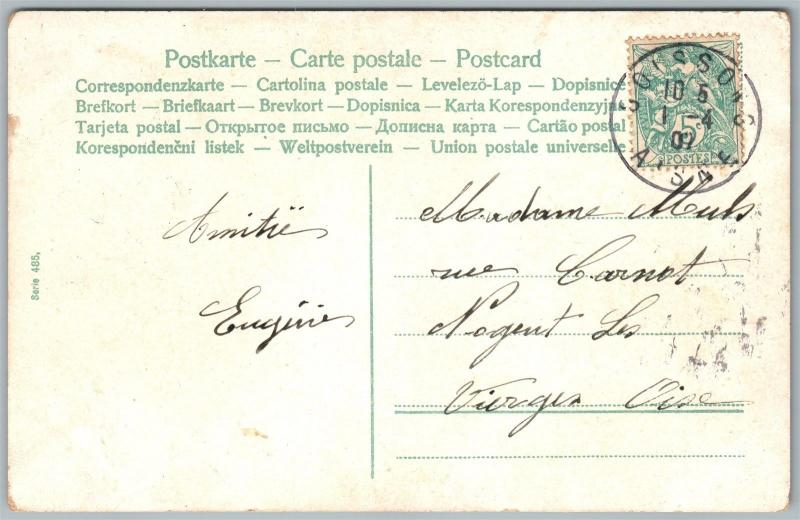 Postkarte – Carte postale – Postcard
Correspondenzkarte – Cartolina postale – Levelezö-Lap – Dopisnice
Brefkort – Briefkaart – Brevkort – Dopisnica – Karta Korespondenzyjna
Tarjeta postal – Открытое письмо – Дописна карта – Cartão postal
Korespondenčni listek – Weltpostverein – Union postale universelle
SOISSONS
10 5
1 -4
07
AISNE
5
POSTES
Amitié
Eugénie
Madame
rue Carnot
Nogent Les
Vierges Oise
Serie 485.